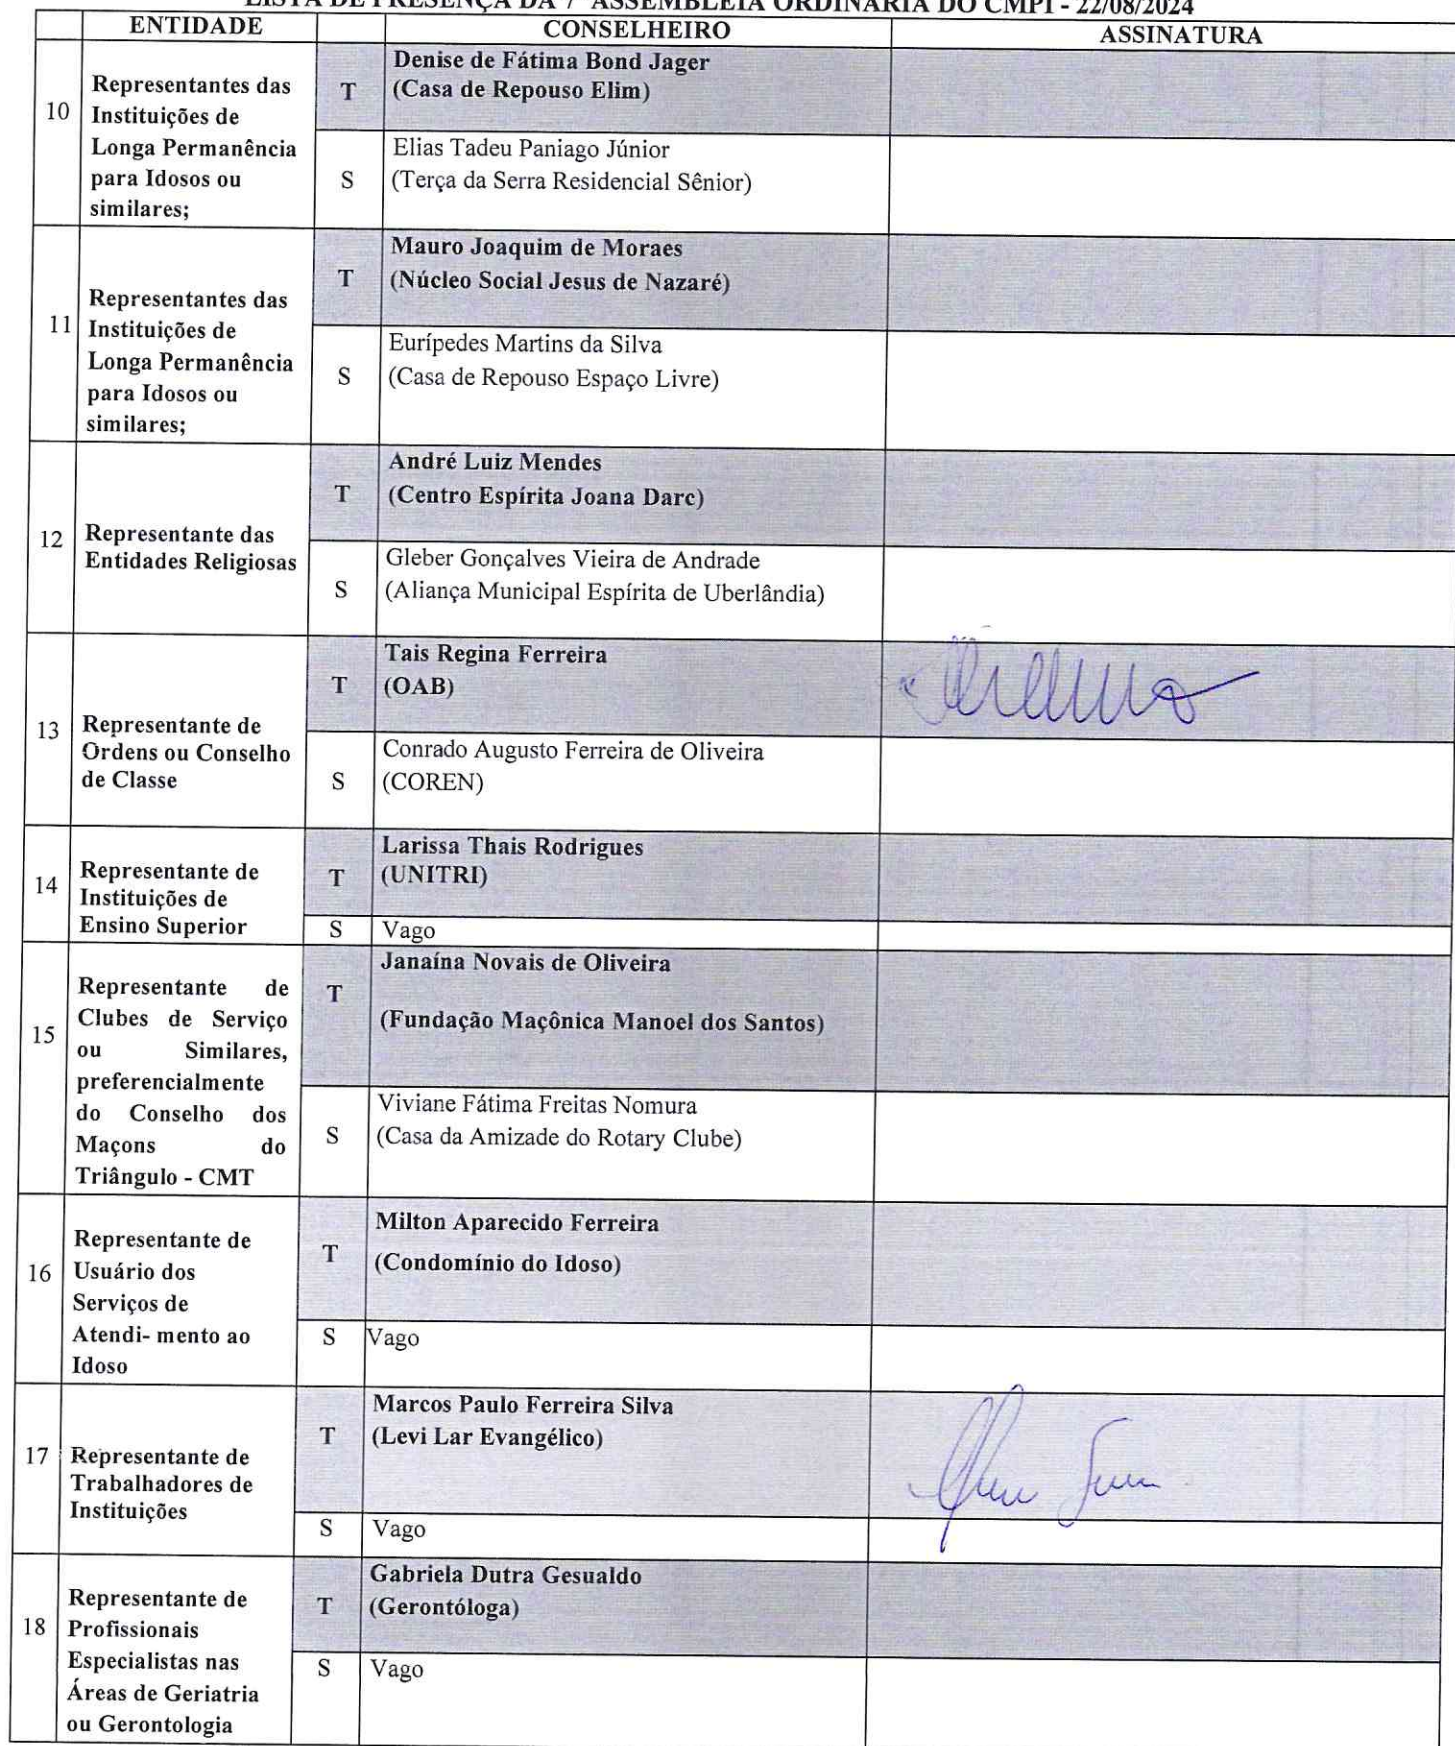 LISTA DE PRESENÇA DA 7ª ASSEMBLEIA ORDINÁRIA DO CMPI - 22/08/2024
ENTIDADE CONSELHEIRO ASSINATURA
10
Representantes das
Instituições de
Longa Permanência
para Idosos ou
similares;
T
Denise de Fátima Bond Jager
(Casa de Repouso Elim)
S
Elias Tadeu Paniago Júnior
(Terça da Serra Residencial Sênior)
11
Representantes das
Instituições de
Longa Permanência
para Idosos ou
similares;
T
Mauro Joaquim de Moraes
(Núcleo Social Jesus de Nazaré)
S
Eurípedes Martins da Silva
(Casa de Repouso Espaço Livre)
12
Representante das
Entidades Religiosas
T
André Luiz Mendes
(Centro Espírita Joana Darc)
S
Gleber Gonçalves Vieira de Andrade
(Aliança Municipal Espírita de Uberlândia)
13
Representante de
Ordens ou Conselho
de Classe
T
Tais Regina Ferreira
(OAB)
S
Conrado Augusto Ferreira de Oliveira
(COREN)
14
Representante de
Instituições de
Ensino Superior
T
Larissa Thais Rodrigues
(UNITRI)
S
Vago
15
Representante de
Clubes de Serviço
ou Similares,
preferencialmente
do Conselho dos
Maçons do
Triângulo - CMT
T
Janaína Novais de Oliveira
(Fundação Maçônica Manoel dos Santos)
S
Viviane Fátima Freitas Nomura
(Casa da Amizade do Rotary Clube)
16
Representante de
Usuário dos
Serviços de
Atendi- mento ao
Idoso
T
Milton Aparecido Ferreira
(Condomínio do Idoso)
S
Vago
17
Representante de
Trabalhadores de
Instituições
T
Marcos Paulo Ferreira Silva
(Levi Lar Evangélico)
S
Vago
18
Representante de
Profissionais
Especialistas nas
Áreas de Geriatria
ou Gerontologia
T
Gabriela Dutra Gesualdo
(Gerontóloga)
S
Vago